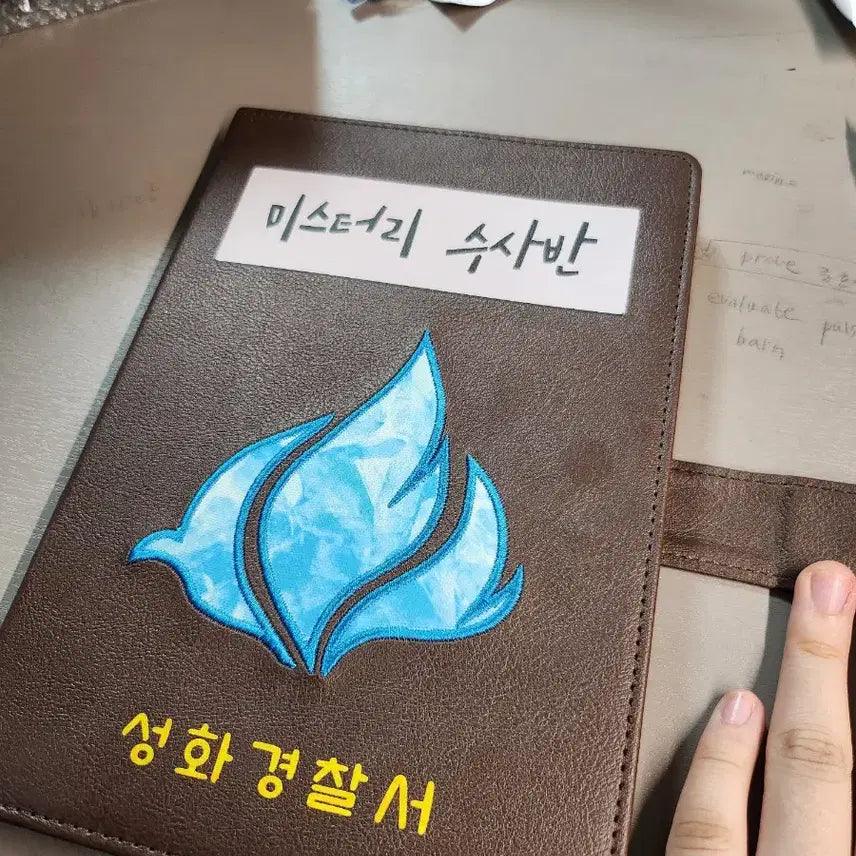 미스터리 수사반
prove
evaluate
성화경찰서